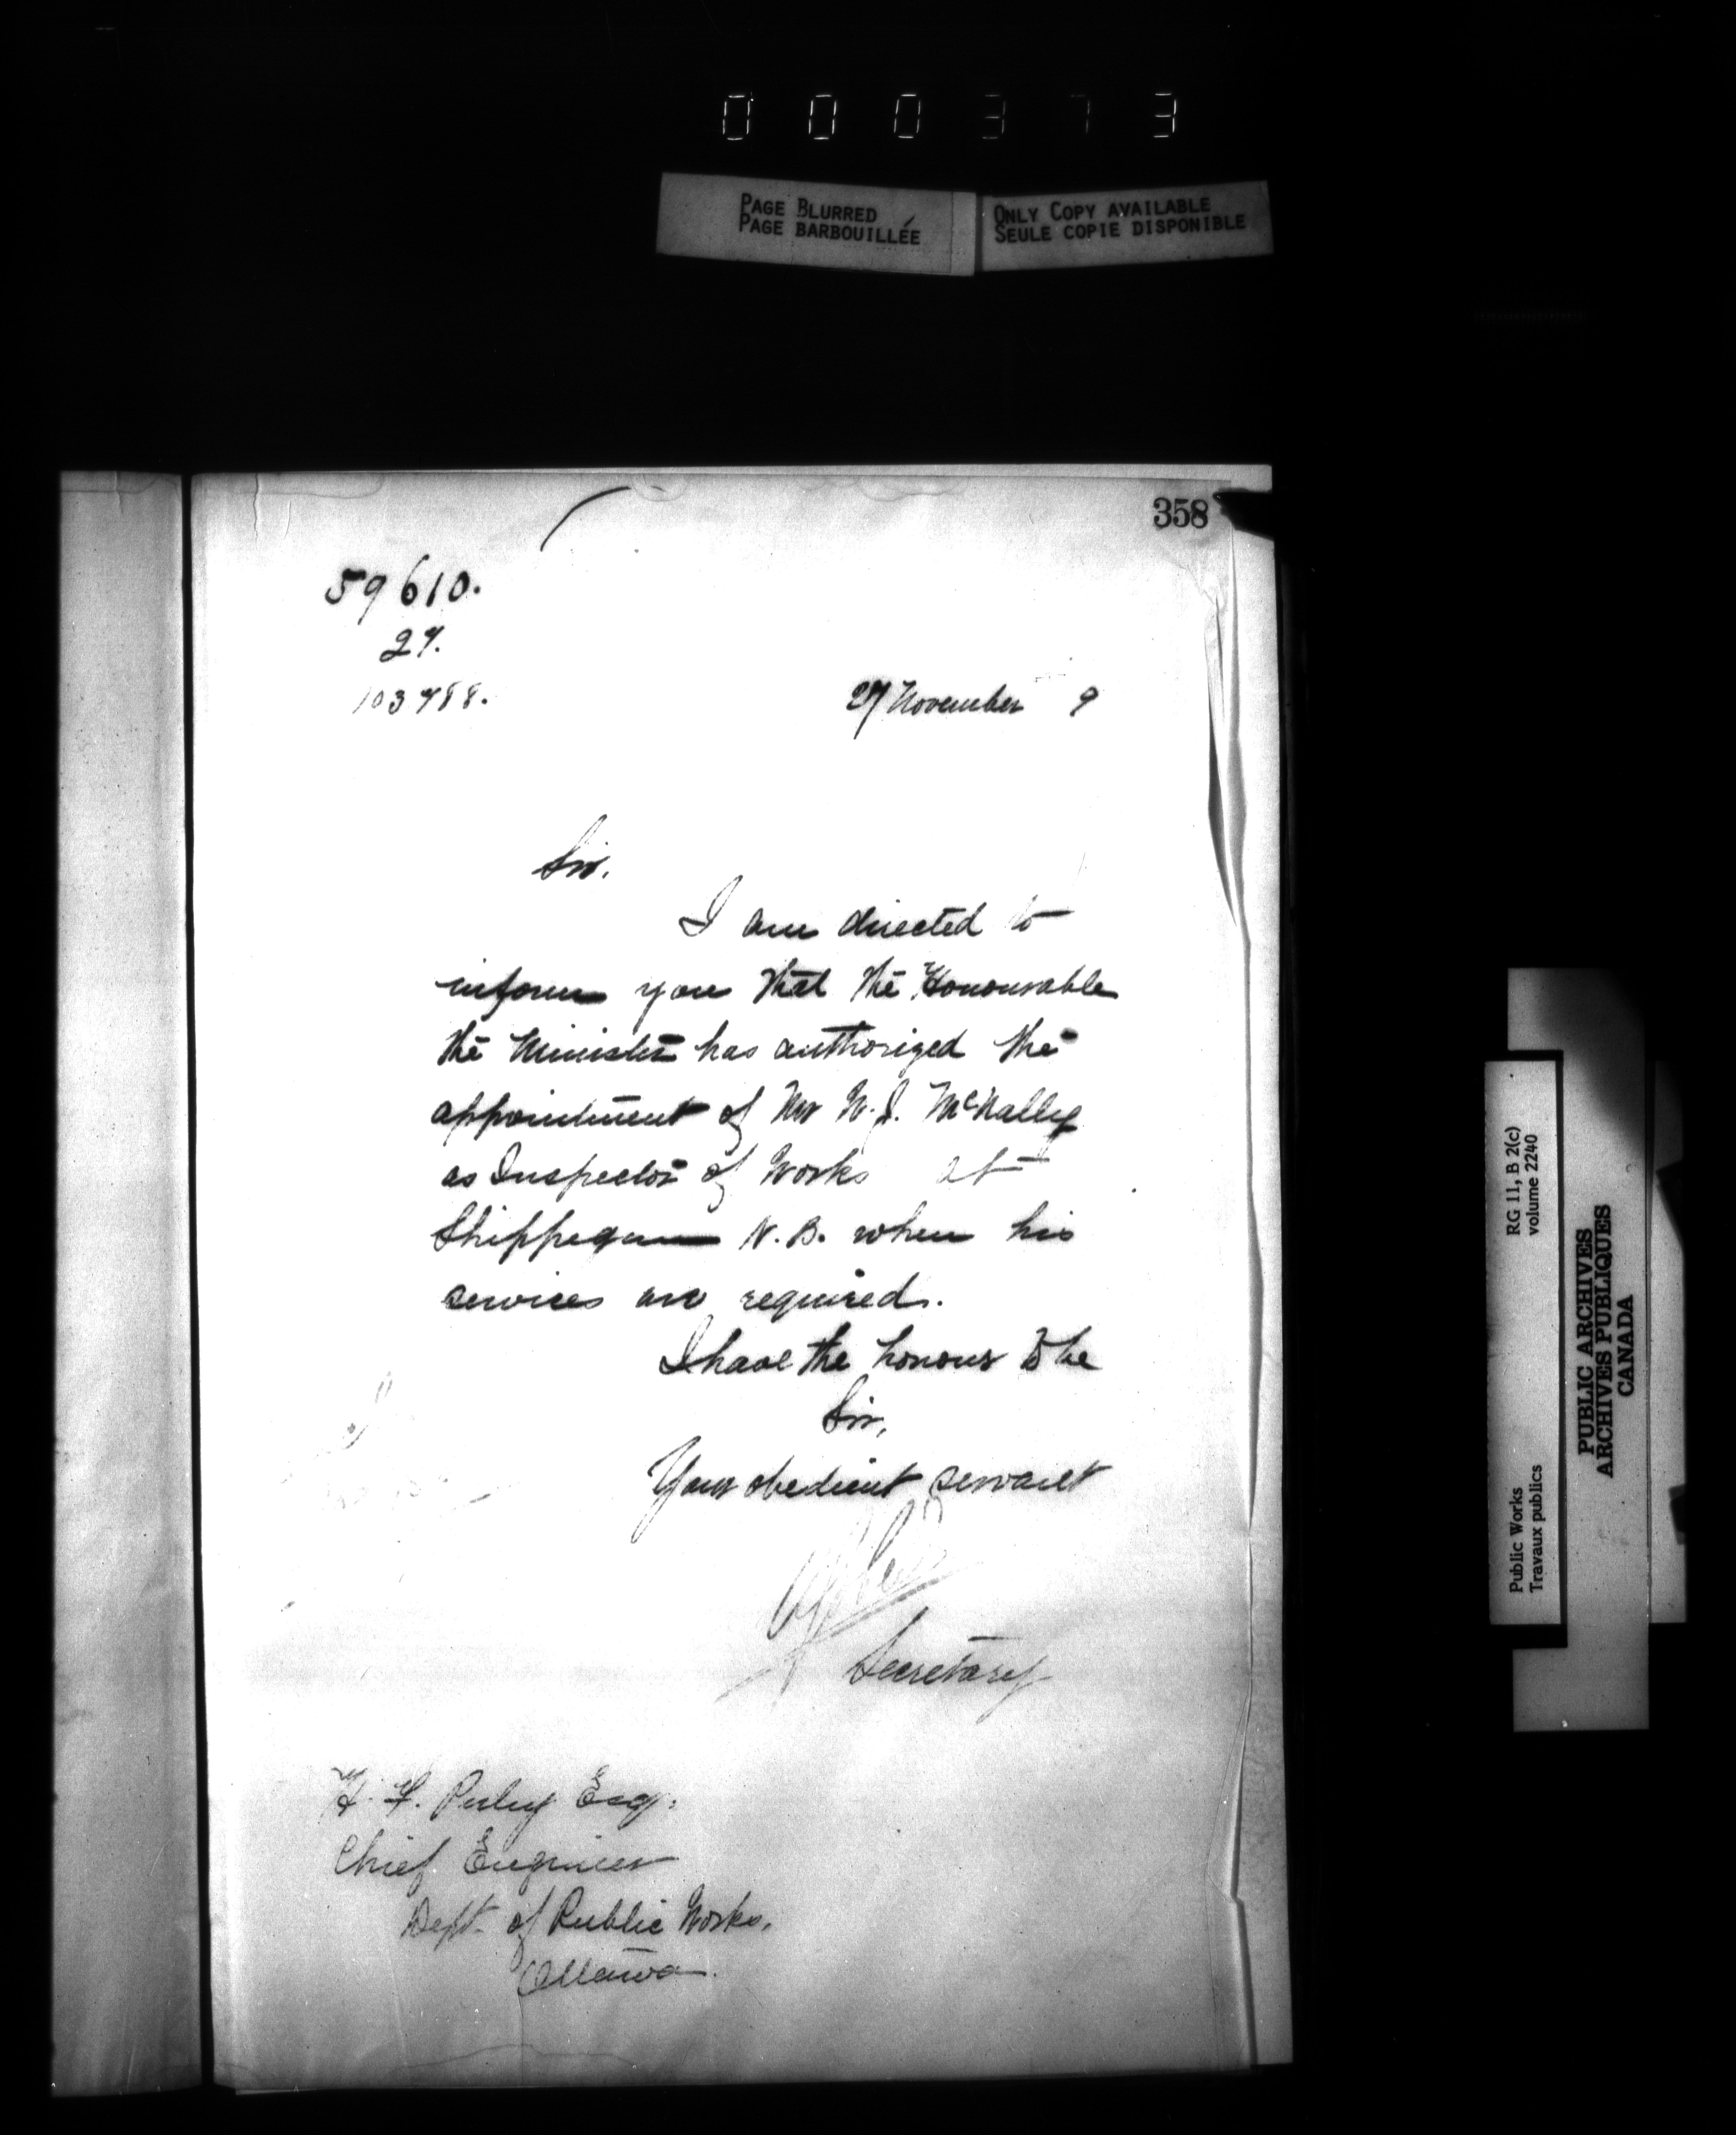 000373
PAGE BLURRED
PAGE BARBOUILLÉE
ONLY COPY AVAILABLE
SEULE COPIE DISPONIBLE
358
59610.
27.
103788.
27 November 9
Sir,
I am directed to
inform you that the Honourable
the Minister has authorized the
appointment of Mr McNally
as Inspector of Works at
Shippegan N.B. when his
services are required.
I have the honour to be
Sir,
Your obedient servant
Secretary
H. F. Perley Esq:
Chief Engineer
Dept. of Public Works,
Ottawa.
RG 11, B 2(c)
volume 2240
Public Works
Travaux publics
PUBLIC ARCHIVES
ARCHIVES PUBLIQUES
CANADA